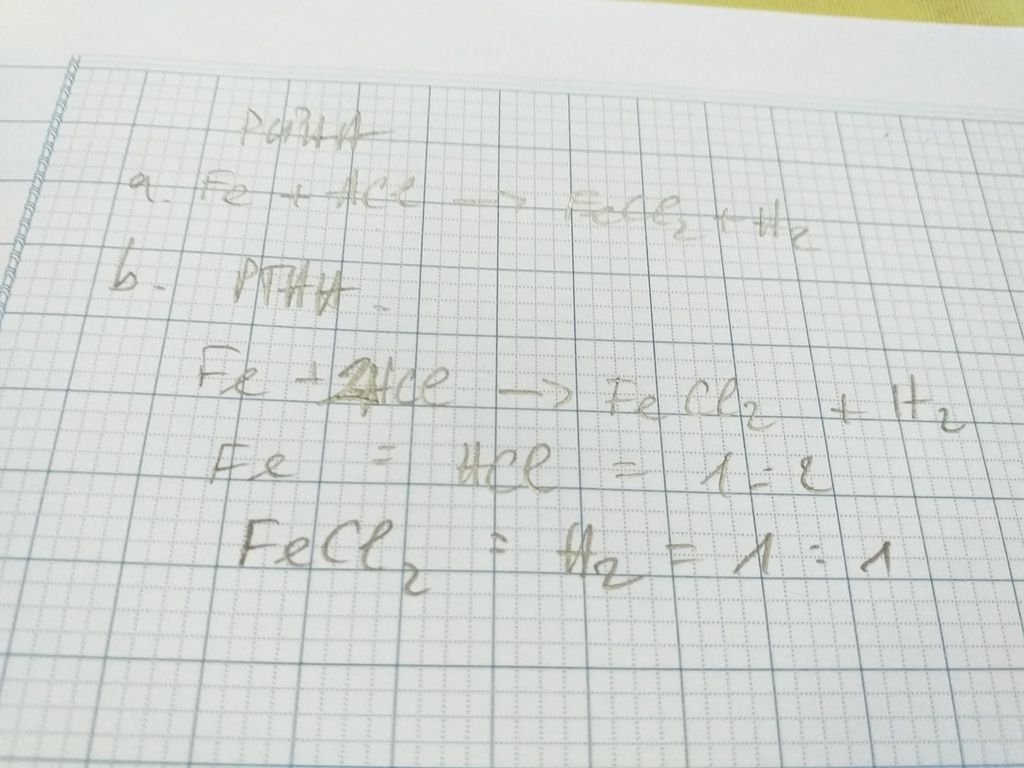 PƯHH
a. Fe + HCl -> FeCl₂ + H₂
b. PTHH.
Fe + 2HCl -> FeCl₂ + H₂
Fe : HCl = 1 : 2
FeCl₂ : H₂ = 1 : 1